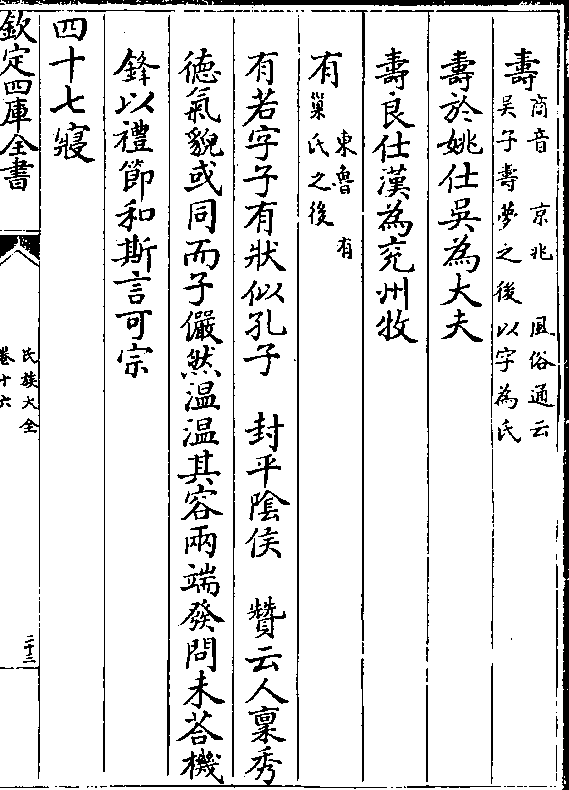 壽商音 京兆 風俗通云
吳子壽夢之後以字為氏
壽於姚仕吳為大夫
壽良仕漢為兖州牧
有東魯 有
巢氏之後
有若字子有狀似孔子 封平陰侯 贊云人稟秀
徳氣貌或同而子儼然温温其容兩端發問未荅機
鋒以禮節和斯言可宗
四十七寢
欽定四庫全書
氏族大全
卷十六
二十三